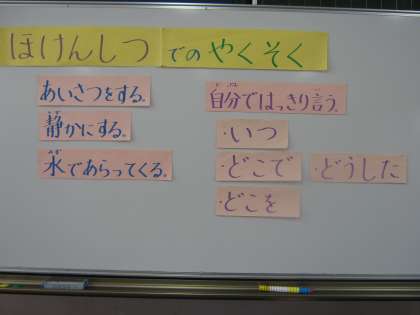 ほけんしつでのやくそく
あいさつをする。
静かにする。
水であらってくる。
自分ではっきり言う。
・いつ
・どこで
・どうした
・どこを